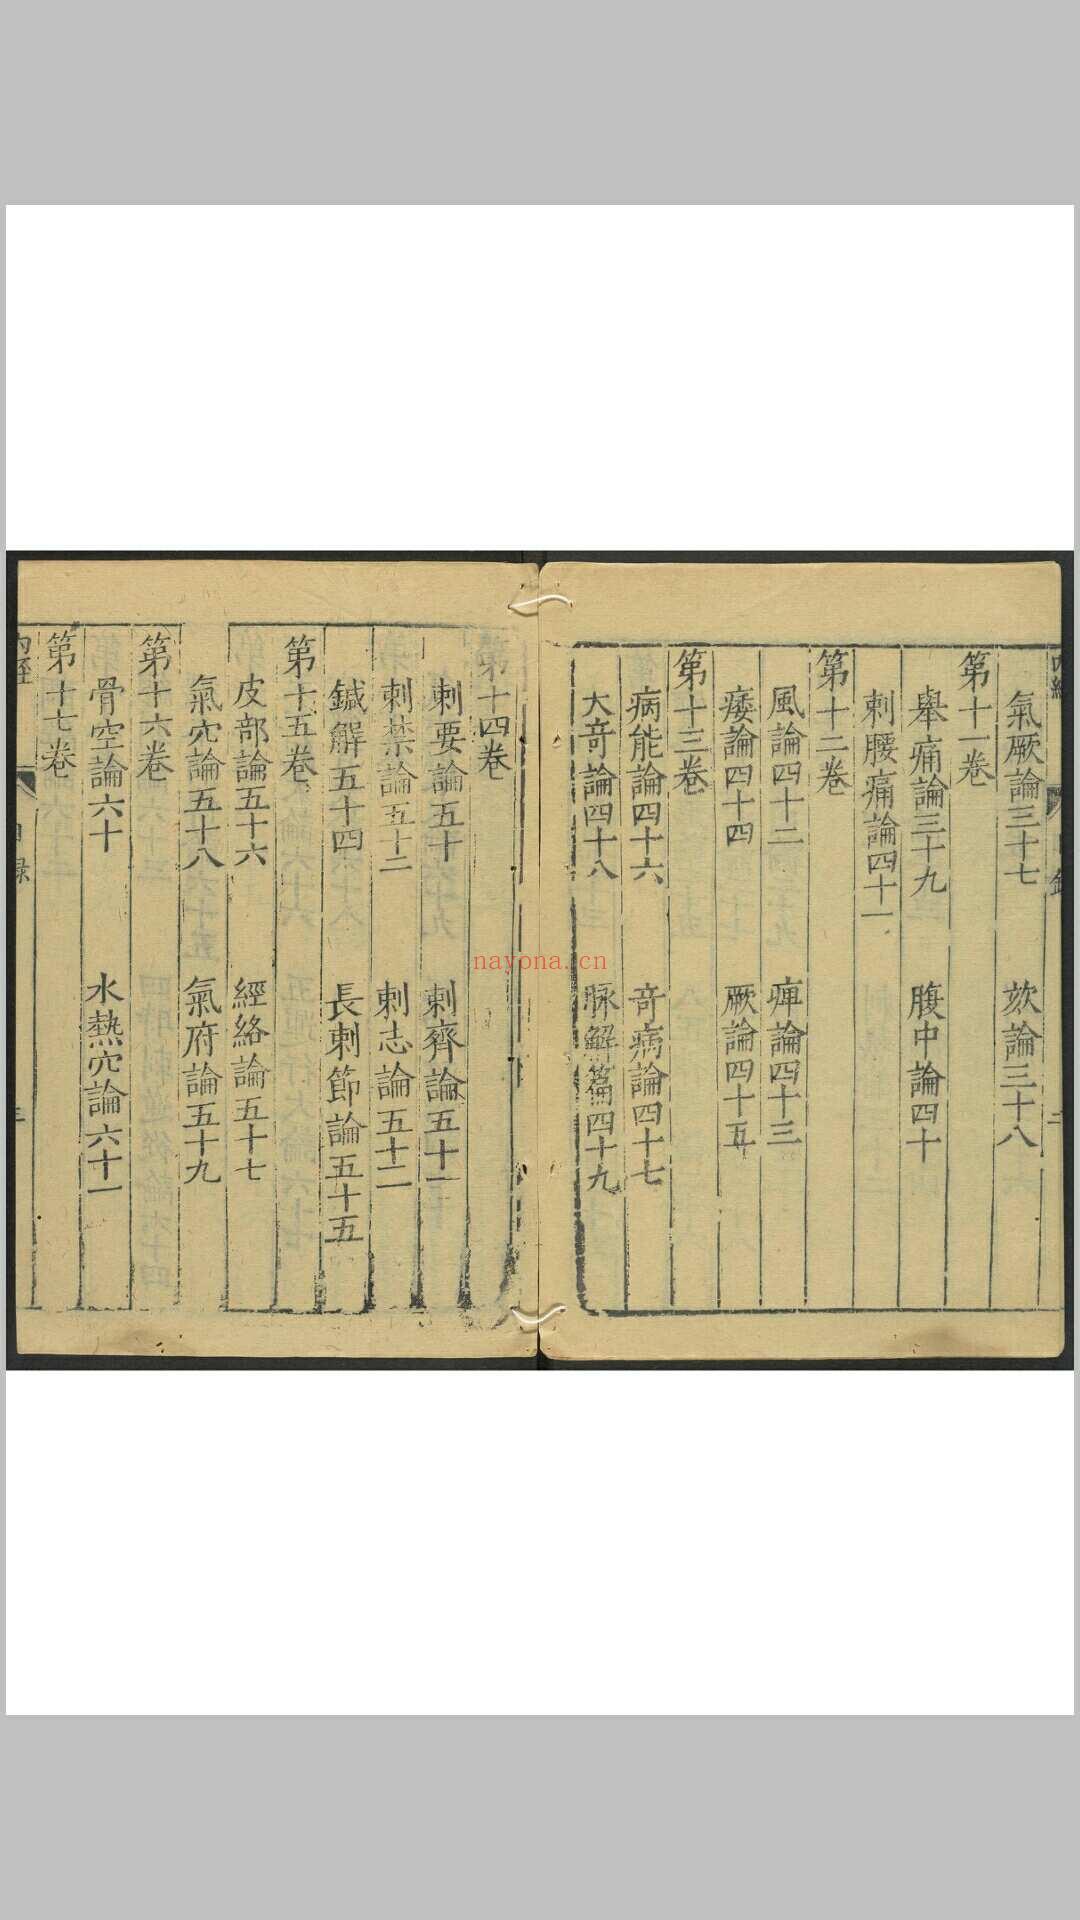 氣厥論三十七　欬論三十八
第十一卷
舉痛論三十九　腹中論四十
刺腰痛論四十一
第十二卷
風論四十二　痺論四十三
痿論四十四　厥論四十五
第十三卷
病能論四十六　奇病論四十七
大奇論四十八　脉解篇四十九
第十四卷
刺要論五十　刺齊論五十一
刺禁論五十二　刺志論五十二
鍼解五十四　長刺節論五十五
第十五卷
皮部論五十六　經絡論五十七
氣穴論五十八　氣府論五十九
第十六卷
骨空論六十　水熱穴論六十一
第十七卷
内經　目録
nayona.cn